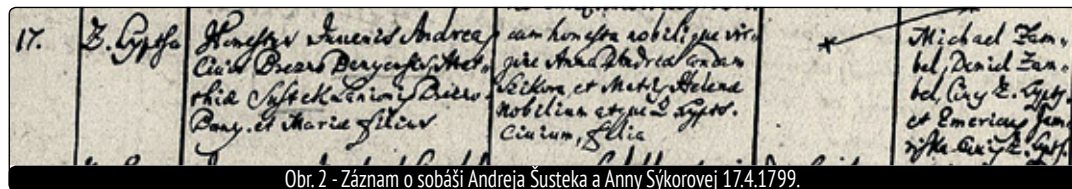 17.
Z. Lyptsa
Honestus Juvenis Andreas
Civis Brezno Banyensis, Mat-
thiæ Sustek Lanionis Brezno-
Bany. et Mariæ filius
cum honesta nobilique vir-
gine Anna Andreæ condam
Szikora, et Matris Helenæ
Nobilium atque Z. Lypts.
Civium, filia
Michael Zam-
bel, Daniel Zam-
bel, Cives Z. Lypts.
et Emericus
Civis Z. Lypts.
Obr. 2 - Záznam o sobáši Andreja Šusteka a Anny Sýkorovej 17.4.1799.